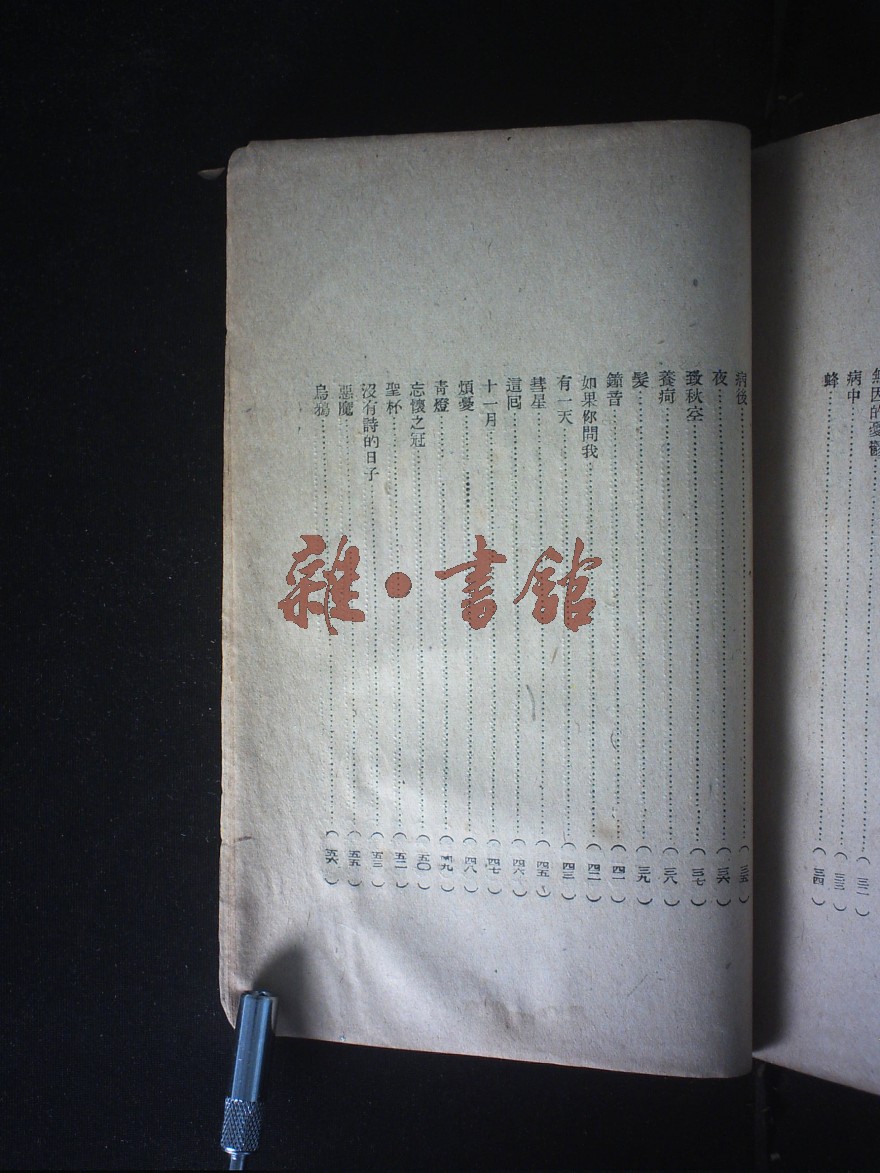 無因的憂鬱
病中
蜂
(三二)
(三三)
(三四)
病後(三五)
夜(三六)
致秋空(三七)
養疴(三八)
髮(三九)
鐘音(四一)
如果你問我(四二)
有一天(四三)
彗星(四五)
這回(四六)
十一月(四七)
煩憂(四八)
靑燈(四九)
忘懷之冠(五〇)
聖杯(五二)
沒有詩的日子(五三)
惡魔(五五)
烏鴉(五六)
雜·書館